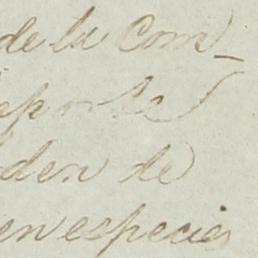 de la Com_
den de
en especies